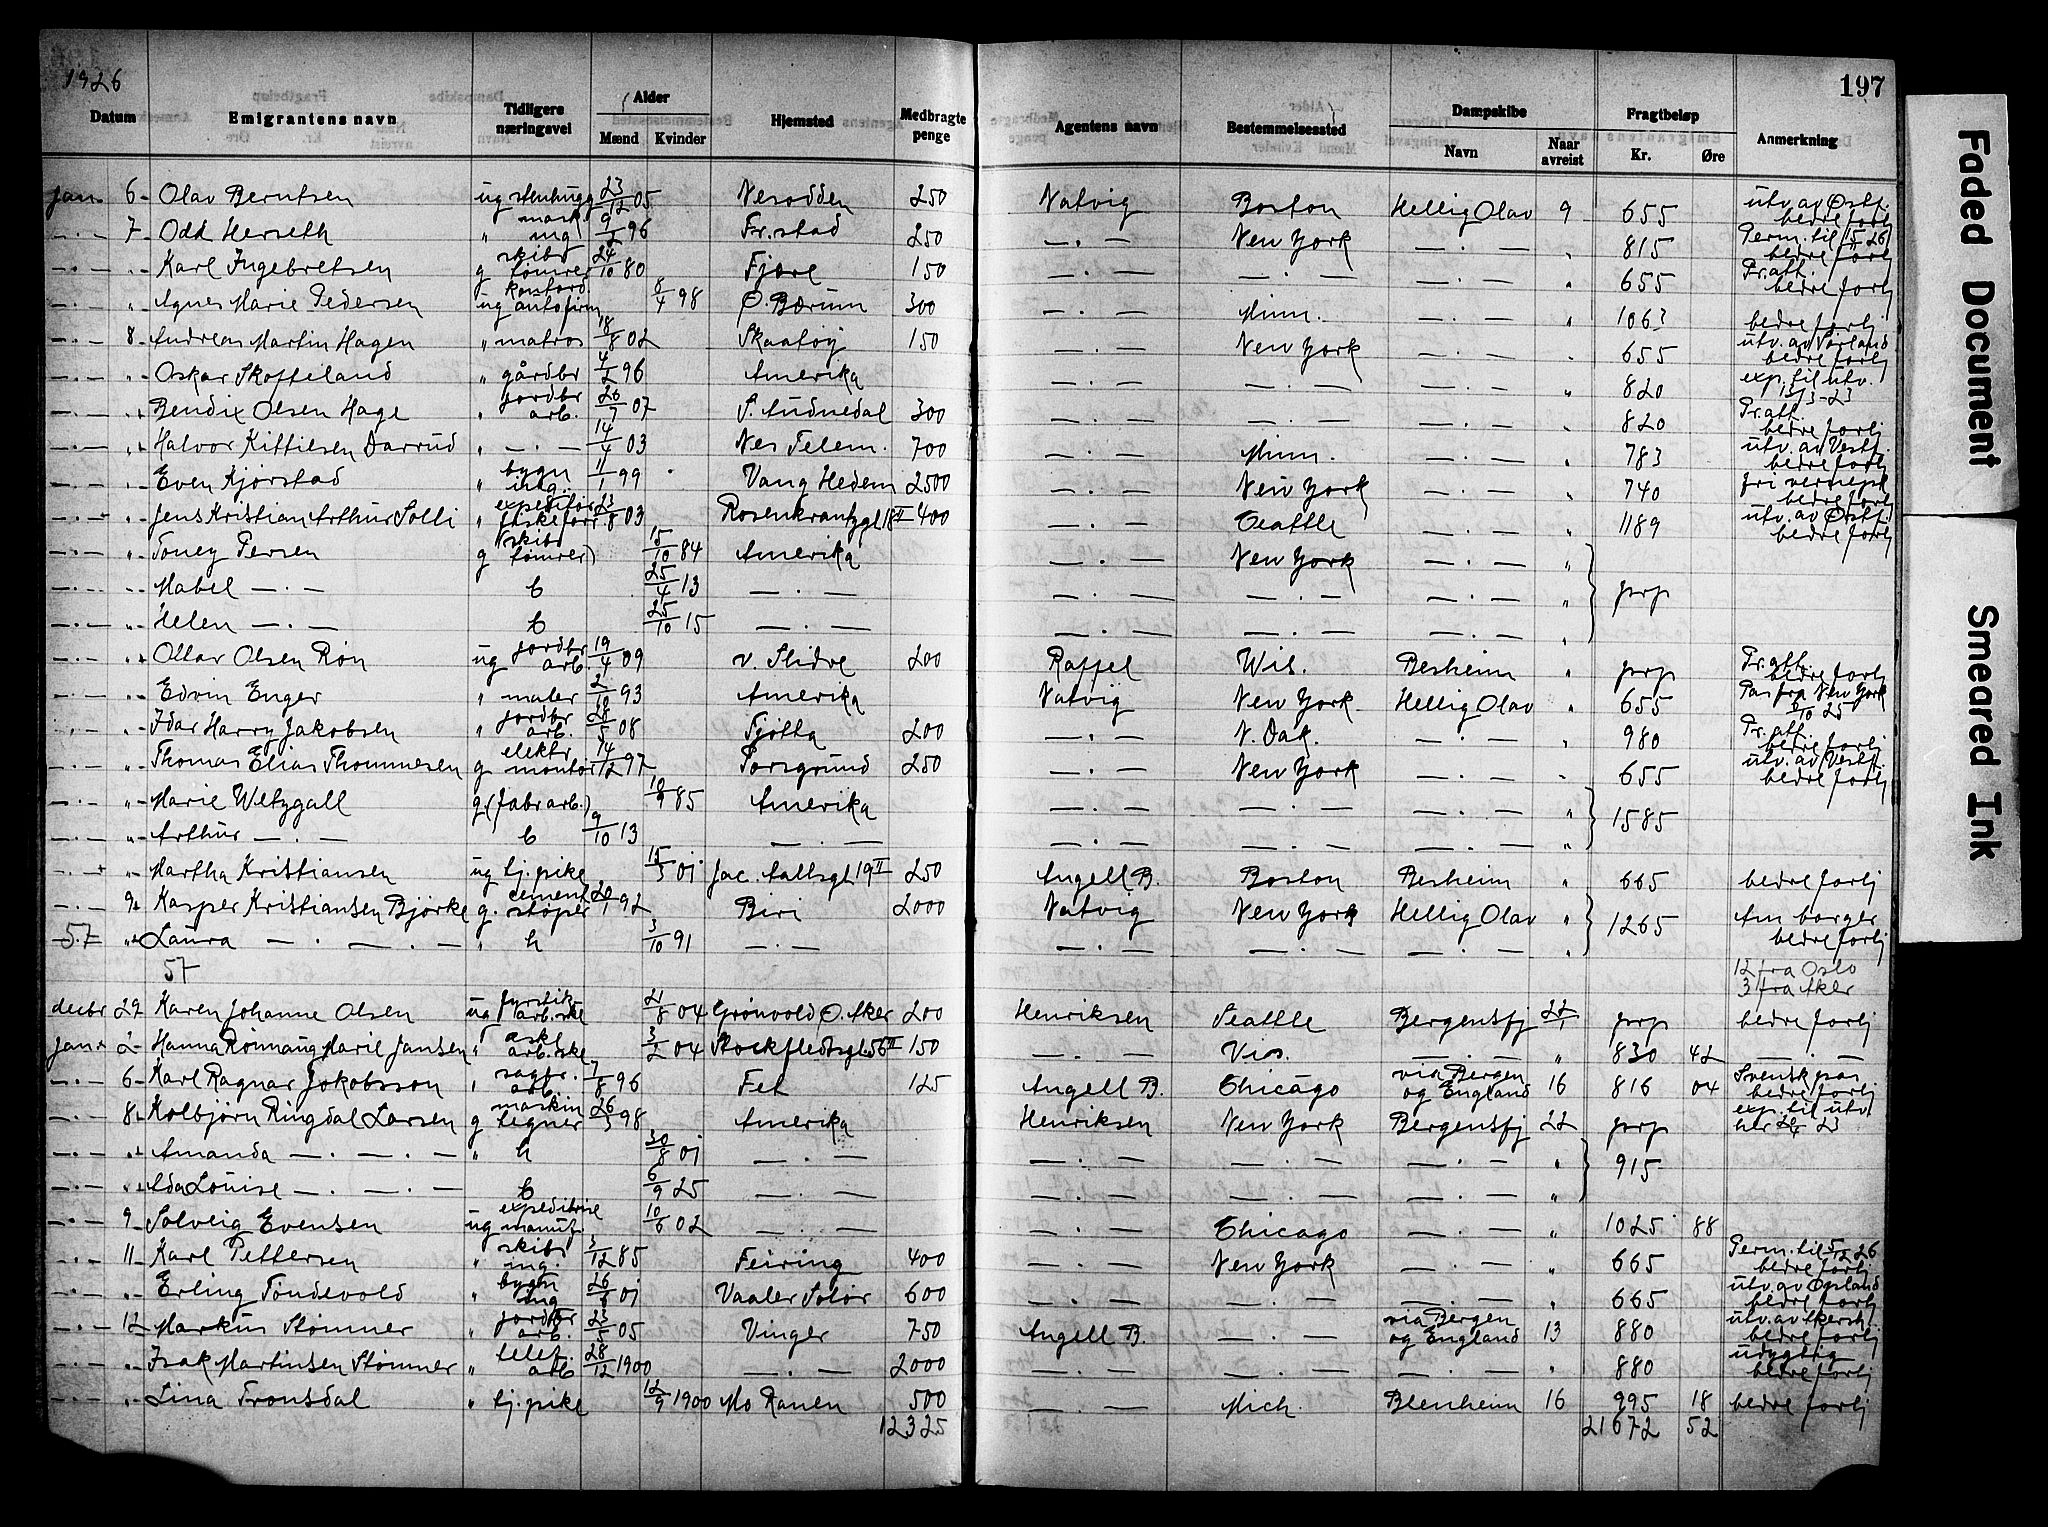 1926
197
Datum Emigrantens navn Tidligere næringsvei Alder Mænd Kvinder Hjemsted Medbragte penge Agentens navn Bestemmelsessted Dampskibe Navn Naar avreist Fragtbeløp Kr. Øre Anmerkning
jan. 6 Olav Berntsen ug stenhugg 23/12 05 Nesodden 250 Natvig Boston Hellig Olav 9 655 utv. av Østf. bedre forhj
— . — 7 Odd Herseth " mask. ing 96 Fr.stad 250 — . — New York — . — " 815 Perm. til 15 26 bedre forhj
— . — " Karl Ingebretsen g skibs tømrer 24/10 80 Fjære 150 — . — — . — — . — " 655 Pr. att. bedre forhj
— . — " Agnes Marie Pedersen ug kontord. autofirm 8/4 98 Ø. Bærum 300 — . — Minn. — . — " 1063 bedre forhj
— . — 8 Andreas Martin Hagen " matros 18/8 02 Skaatøy 150 — . — New York — . — " 655 utv. av Sørland bedre forhj
— . — " Oskar Skoffeland " gårdbr 4/2 96 Amerika — . — — . — — . — " 820 exp. til utv. 13/3-23
— . — " Bendix Olsen Hage " jordbr arb. 26/7 07 S. Audnedal 300 — . — — . — — . — " 820 Pr. att. bedre forhj
— . — " Halvor Kittilsen Darrud " — . — 14/4 03 Nes Telem. 700 — . — Minn. — . — " 783 utv. av Vestf. bedre forhj
— . — " Even Kjørstad " bygn ing. 11/1 99 Vang Hedem 2500 — . — New York — . — " 740 fri vernepl bedre forhj
— . — " Jens Kristian Arthur Solli " expeditør fiskeforr 23/8 03 Rosenkrantzgt 18 II 400 — . — Seattle — . — " 1189 utv. av Østf. bedre forhj
— . — " Toney Persen g (skibs tømrer) 15/10 84 Amerika — . — New York — . — "
— . — " Mabel — . — b 25/4 13 — . — — . — — . — — . — " prp
— . — " Helen — . — b 25/10 15 — . — — . — — . — — . — "
— . — " Ollar Olsen Røn ug jordbr arb. 19/4 09 v. Slidre 200 Raffel Wis. Besheim " prp Pr. att. bedre forhj
— . — " Edvin Enger " maler 93 Amerika Natvig New York Hellig Olav " 655 Pas fra New York 6/10 25
— . — " Idar Harry Jakobsen " jordbr arb. 28/5 08 Tjøtta 200 — . — N. Dak. — . — " 980 Pr. att. bedre forhj
— . — " Thomas Elias Thommesen g elektr montør 14/12 97 Porsgrund 250 — . — New York — . — " 655 utv. av Vestf. bedre forhj
— . — " Marie Wetzgall g (fabr arb.) 10/9 85 Amerika — . — — . — — . — " 1585
— . — " Arthur — . — b 9/10 13 — . — — . — — . — — . — "
— . — " Martha Kristiansen ug tj. pike 15/3 01 Jac. Aallsgt 19 II 250 Angell B. Boston Besheim " 665 bedre forhj
— . — 9 Kasper Kristiansen Bjørke g. cement støper 20/1 92 Biri 2000 Natvig New York Hellig Olav " 1265 Am borger
57 " Laura — . — . — " h 3/10 91 — . — — . — — . — — . — " bedre forhj
57
12 fra Oslo
3 fra Aker
decbr 29 Karen Johanne Olsen ug fyrstik arb.ske 21/8 04 Grønvold Ø. Aker 200 Henriksen Seattle Bergensfj 22/1 prp bedre forhj
jan 2 Hanna Rønnaug Marie Jansen " æske arb.ske 3/2 04 Stockfledtsgt 56 II 150 — . — Vis. — . — " 830 42 — . —
— . — 6 Karl Ragnar Jakobsson " sagbr. arb. 7/8 96 Fet 125 Angell B. Chicago via Bergen og England 16 816 04 Svensk pas bedre forhj
— . — 8 Kolbjørn Ringdal Larsen g maskin tegner 26/3 98 Amerika Henriksen New York Bergensfj 22 prp exp. til utv her 24/4 23
— . — " Amanda — . — . — " h 30/8 01 — . — — . — — . — — . — " 915
— . — " Ada Louise — . — . — b 6/9 25 — . — — . — — . — — . — "
— . — 9 Solveig Evensen ug expeditrise manuf. 10/6 02 — . — — . — Chicago — . — " 1025 88
— . — 11 Karl Pettersen " skibs ing. 3/12 85 Feiring 400 New York — . — " 665 Perm. til 5/12 26 bedre forhj
— . — " Erling Tondevold " bygn ing 26/8 01 Vaaler Solør 600 — . — — . — — . — " 665 utv. av Opland bedre forhj
— . — 12 Markus Stømner " jordbr arb. 23/5 05 Vinger 750 Angell B. — . — via Bergen og England 13 880 utv. av Akersh bedre forhj
— . — " Isak Martinsen Stømner " telef. arb 28/12 1900 — . — 2000 — . — — . — — . — " 880 udygtig bedre forhj
— . — " Lina Tronsdal " tj. pike 12/9 1900 Mo Ranen 500 — . — Mich. Blenheim 16 995 18 bedre forhj
12325 21672 52
Faded Document
Smeared Ink